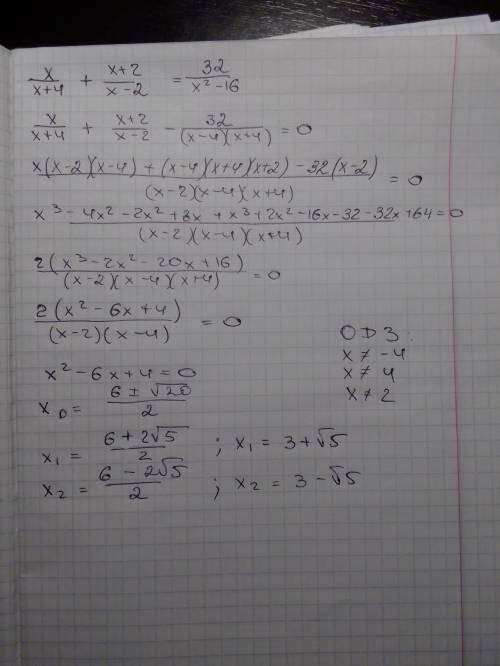 x/(x+4) + (x+2)/(x-2) = 32/(x²-16)
x/(x+4) + (x+2)/(x-2) - 32/((x-4)(x+4)) = 0
(x(x-2)(x-4) + (x-4)(x+4)(x+2) - 32(x-2))/((x-2)(x-4)(x+4)) = 0
(x³ - 4x² - 2x² + 8x + x³ + 2x² - 16x - 32 - 32x + 64)/((x-2)(x-4)(x+4)) = 0
2(x³ - 2x² - 20x + 16)/((x-2)(x-4)(x+4)) = 0
2(x² - 6x + 4)/((x-2)(x-4)) = 0
x² - 6x + 4 = 0
x₀ = (6 ± √20)/2
x₁ = (6 + 2√5)/2 ; x₁ = 3 + √5
x₂ = (6 - 2√5)/2 ; x₂ = 3 - √5
ОДЗ:
x ≠ -4
x ≠ 4
x ≠ 2